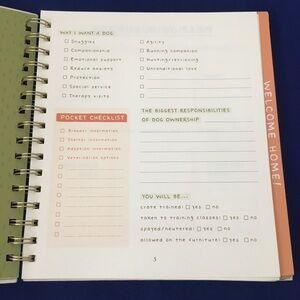 WHY I WANT A DOG
Snuggles
Companionship
Emotional support
Reduce anxiety
Protection
Special service
Therapy visits
Agility
Running companion
Hunting/retrieving
Unconditional love
POCKET CHECKLIST
Breeder information
Shelter information
Adoption information
Veterinarian options
THE BIGGEST RESPONSIBILITIES
OF DOG OWNERSHIP
YOU WILL BE...
crate trained? yes no
taken to training classes? yes no
spayed/neutered? yes no
allowed on the furniture? yes no
WELCOME HOME!